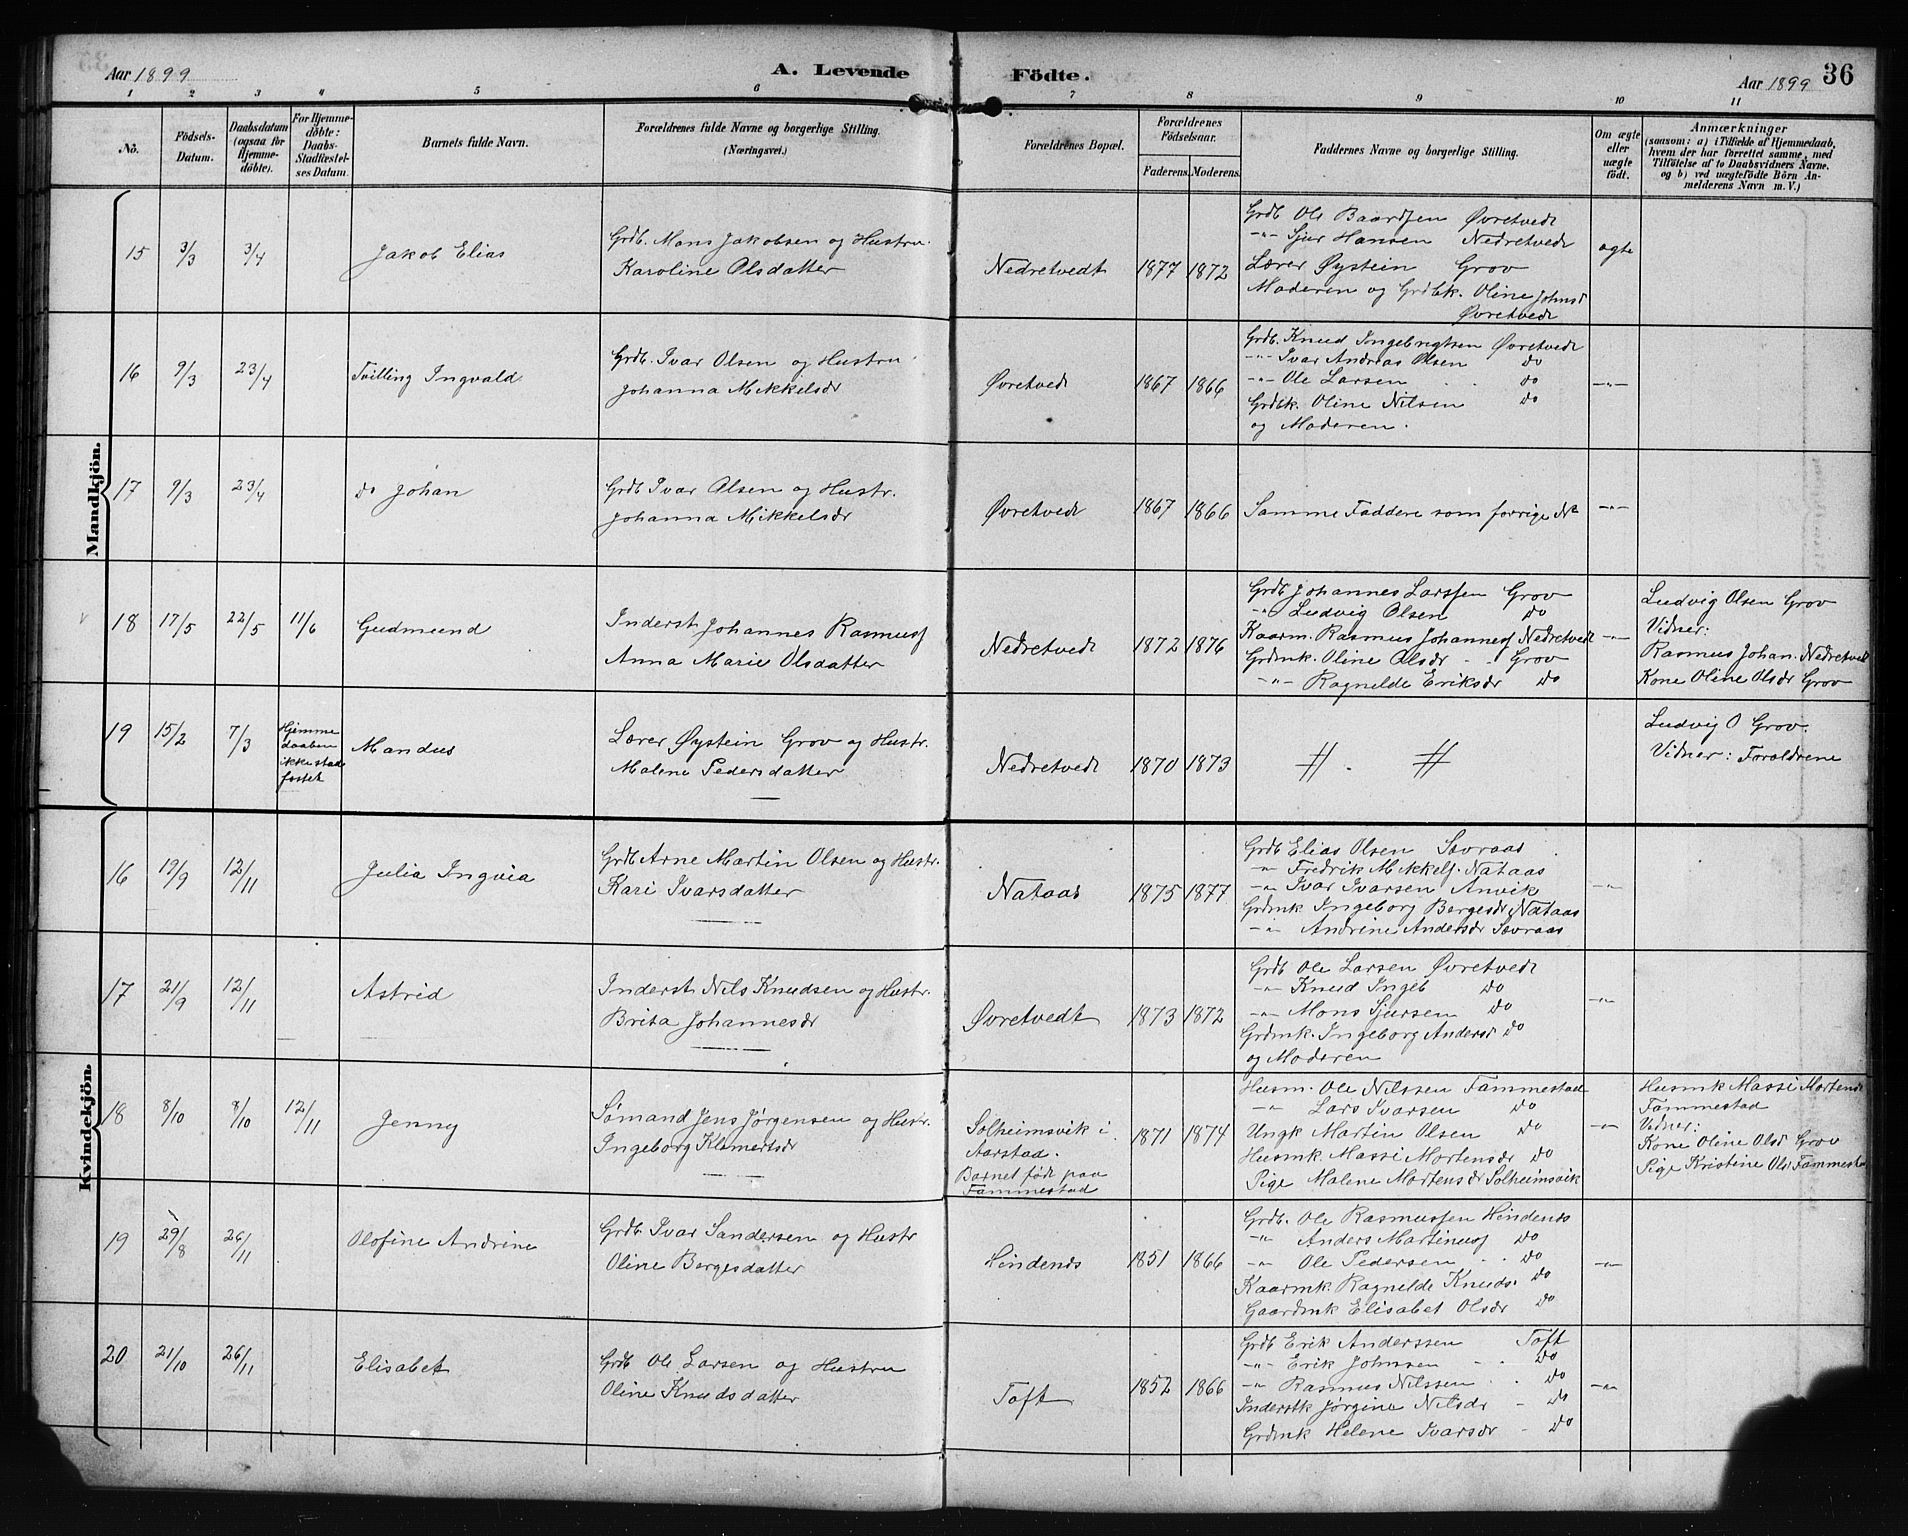 Aar 1899
A. Levende Födte.
Aar 1899 36
1 2 3 4 5 6 7 8 9 10 11
No.
Födsels-
Datum.
Daabsdatum
(ogsaa for
Hjemme-
döbte).
For Hjemme-
döbte:
Daabs-
Stadfæstel-
ses Datum.
Barnets fulde Navn.
Forældrenes fulde Navne og borgerlige Stilling.
(Næringsvei.)
Forældrenes Bopæl.
Forældrenes
Födselsaar.
Faderens. Moderens.
Faddernes Navne og borgerlige Stilling.
Om ægte
eller
uægte
født.
Anmærkninger
(saasom: a) i Tilfælde af Hjemmedaab,
hvem der har forrettet samme, med
Tilföielse af to Daabsvidners Navne.
og b) ved uægtefödte Börn An-
melderens Navn m. V.)
Mandkjön.
15 3/3 3/4 Jakob Elias
Grdb. Mons Jakobsen og Hustru
Karoline Olsdatter
Nedretvedt 1877 1872
Grdb Ole Baardsen Øvretvedt
-"- Sjur Hansen Nedretvedt
Lærer Øystein Grov
Moderen og Grdbk. Oline Johnsd
Øvretvedt
ægte
16 9/3 23/4 Tvilling Ingvald
Grdb. Ivar Olsen og Hustru
Johanna Mikkelsdr
Øvretvedt 1867 1866
Grdb. Knud Ingebrigtsen Øvretvedt
-"- Ivar Andreas Olsen do
-"- Ole Larsen do
Grdbk. Oline Nilsen do
og Moderen.
-"-
17 9/3 23/4 do Johan
Grdb Ivar Olsen og Hustr.
Johanna Mikkelsdr
Øvretvedt 1867 1866
Samme Faddere som forrige No
-"-
18 17/5 22/5 11/6 Gudmund
Inderst Johannes Rasmusf
Anna Marie Olsdatter
Nedretvedt 1872 1876
Grdb Johannes Larssen Grov
-"- Ludvig Olsen do
Kaarm. Rasmus Johannesf Nedretvedt
Grdmk. Oline Olsdr Grov
-"- Ragnelde Eriksdr do
-"-
Ludvig Olsen Grov
Vidner:
Rasmus Johan. Nedretvedt
Kone Oline Olsdr Grov
19 15/2 7/3
Hjemme
daaben
ikke stad
fæstet
Mandus
Lærer Øystein Grov og Hustr.
Malene Pedersdatter
Nedretvedt 1870 1873
Ludvig O Grov.
Vidner: Forældrene
Kvindekjön.
16 19/9 12/11 Julia Ingvia
Grdb Arne Martin Olsen og Hustr.
Kari Ivarsdatter
Nataas 1875 1877
Grdb Elias Olsen Sævraas
-"- Fredrik Mikkelf. Nataas
-"- Ivar Ivarsen Anvik
Grdmk Ingeborg Børgesdr Nataas
-"- Andrine Andersdr Sævraas
-"-
17 21/9 12/11 Astrid
Inderst Nils Knudsen og Hustr.
Brita Johannesdr
Øvretvedt 1873 1872
Grdb Ole Larsen Øvretvedt
-"- Knud Ingeb do
-"- Mons Sjursen do
Grdmk. Ingeborg Andersd do
og Moderen
-"-
18 8/10 8/10 12/11 Jenny
Sømand Jens Jørgensen og Hustr.
Ingeborg Klamertsdr
Solheimsvik i
Aarstad.
Barnet født paa
Fammestad
1871 1874
Husm. Ole Nilssen Fammestad
-"- Lars Ivarsen do
Ungk Martin Olsen do
Husmk. Massi Mortensdr do
Pige Malene Mortensdr Solheimsvik
-"-
Husmk Massi Mortensd
Fammestad
Vidner:
Kone Oline Olsd Grov
Pige Kristine Olsd Fammestad
19 29/8 26/11 Olofine Andrine
Grdb. Ivar Sandersen og Hustr
Oline Børgesdatter
Hindenes 1851 1866
Grdb. Ole Rasmussen Hindenes
-"- Anders Martinusf do
-"- Ole Pedersen do
Kaarmk. Ragnelde Knuds. do
Gaardmk Elisabet Olsdr do
-"-
20 21/10 26/11 Elisabet
Grdb Ole Larsen og Hustru
Oline Knudsdatter
Toft 1852 1866
Grdb Erik Anderssen Toft
-"- Erik Johnsen do
-"- Rasmus Nilssen do
Inderstk Jørgine Nilsdr do
Grdmk Helene Ivarsdr do
-"-